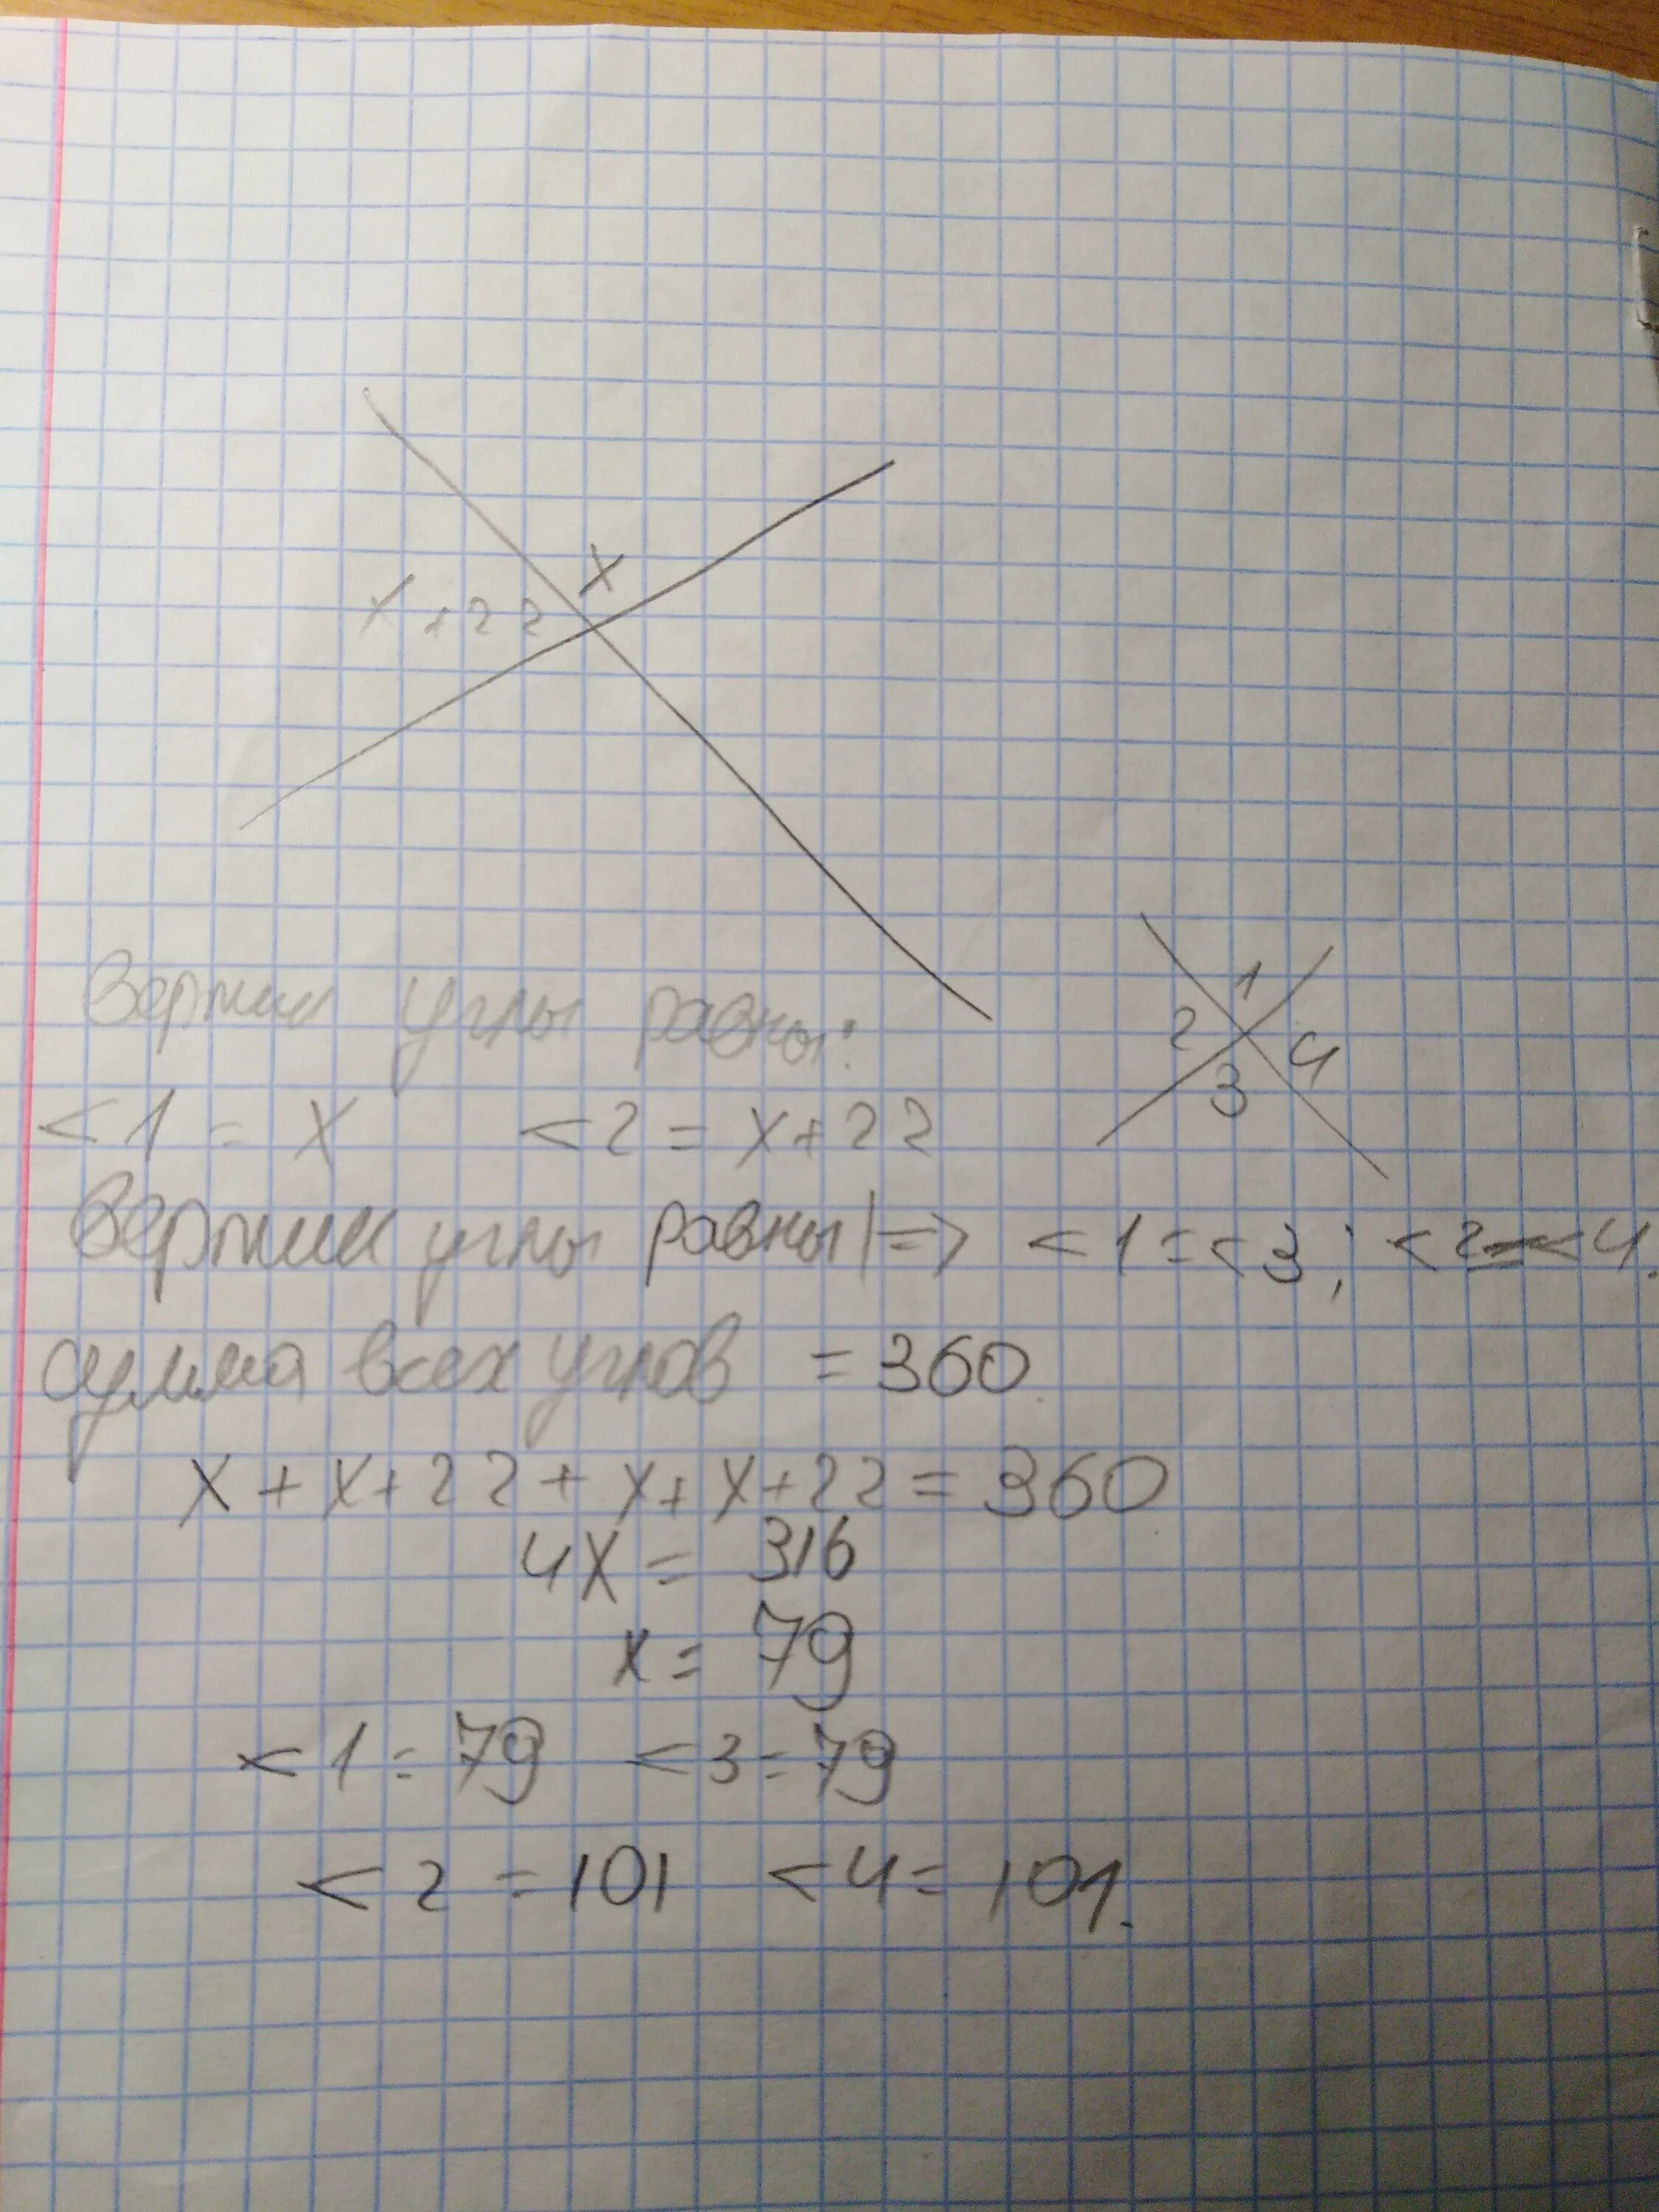 x
x+22
1
2
4
3
углы равны:
<1 = x <2 = x+22
углы равны | => <1 = <3; <2 = <4.
сумма всех углов = 360.
x + x+22 + x + x+22 = 360
4x = 316
x = 79
<1 = 79 <3 = 79
<2 = 101 <4 = 101.